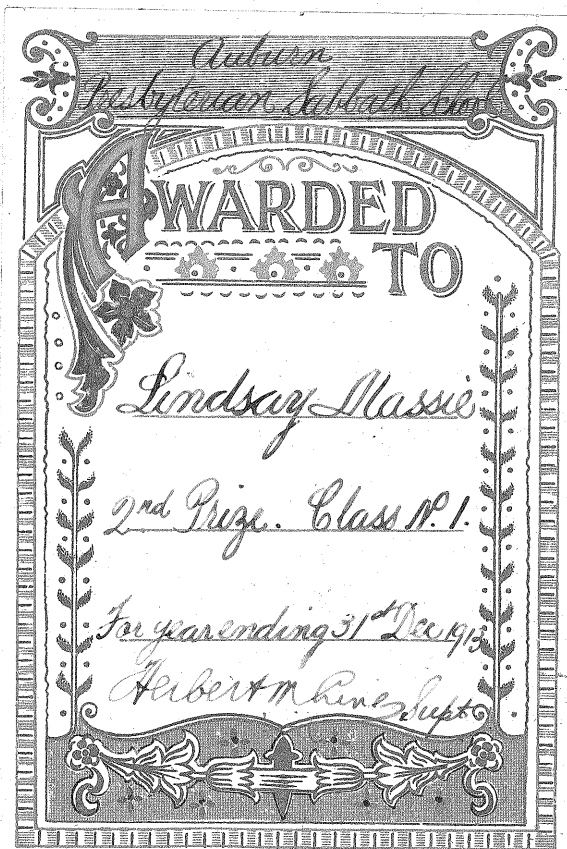 Auburn
Presbyterian Sabbath School
AWARDED
TO
Lindsay Massie
2nd Prize. Class No. 1.
For year ending 31st Dec 1913
Herbert M Supt